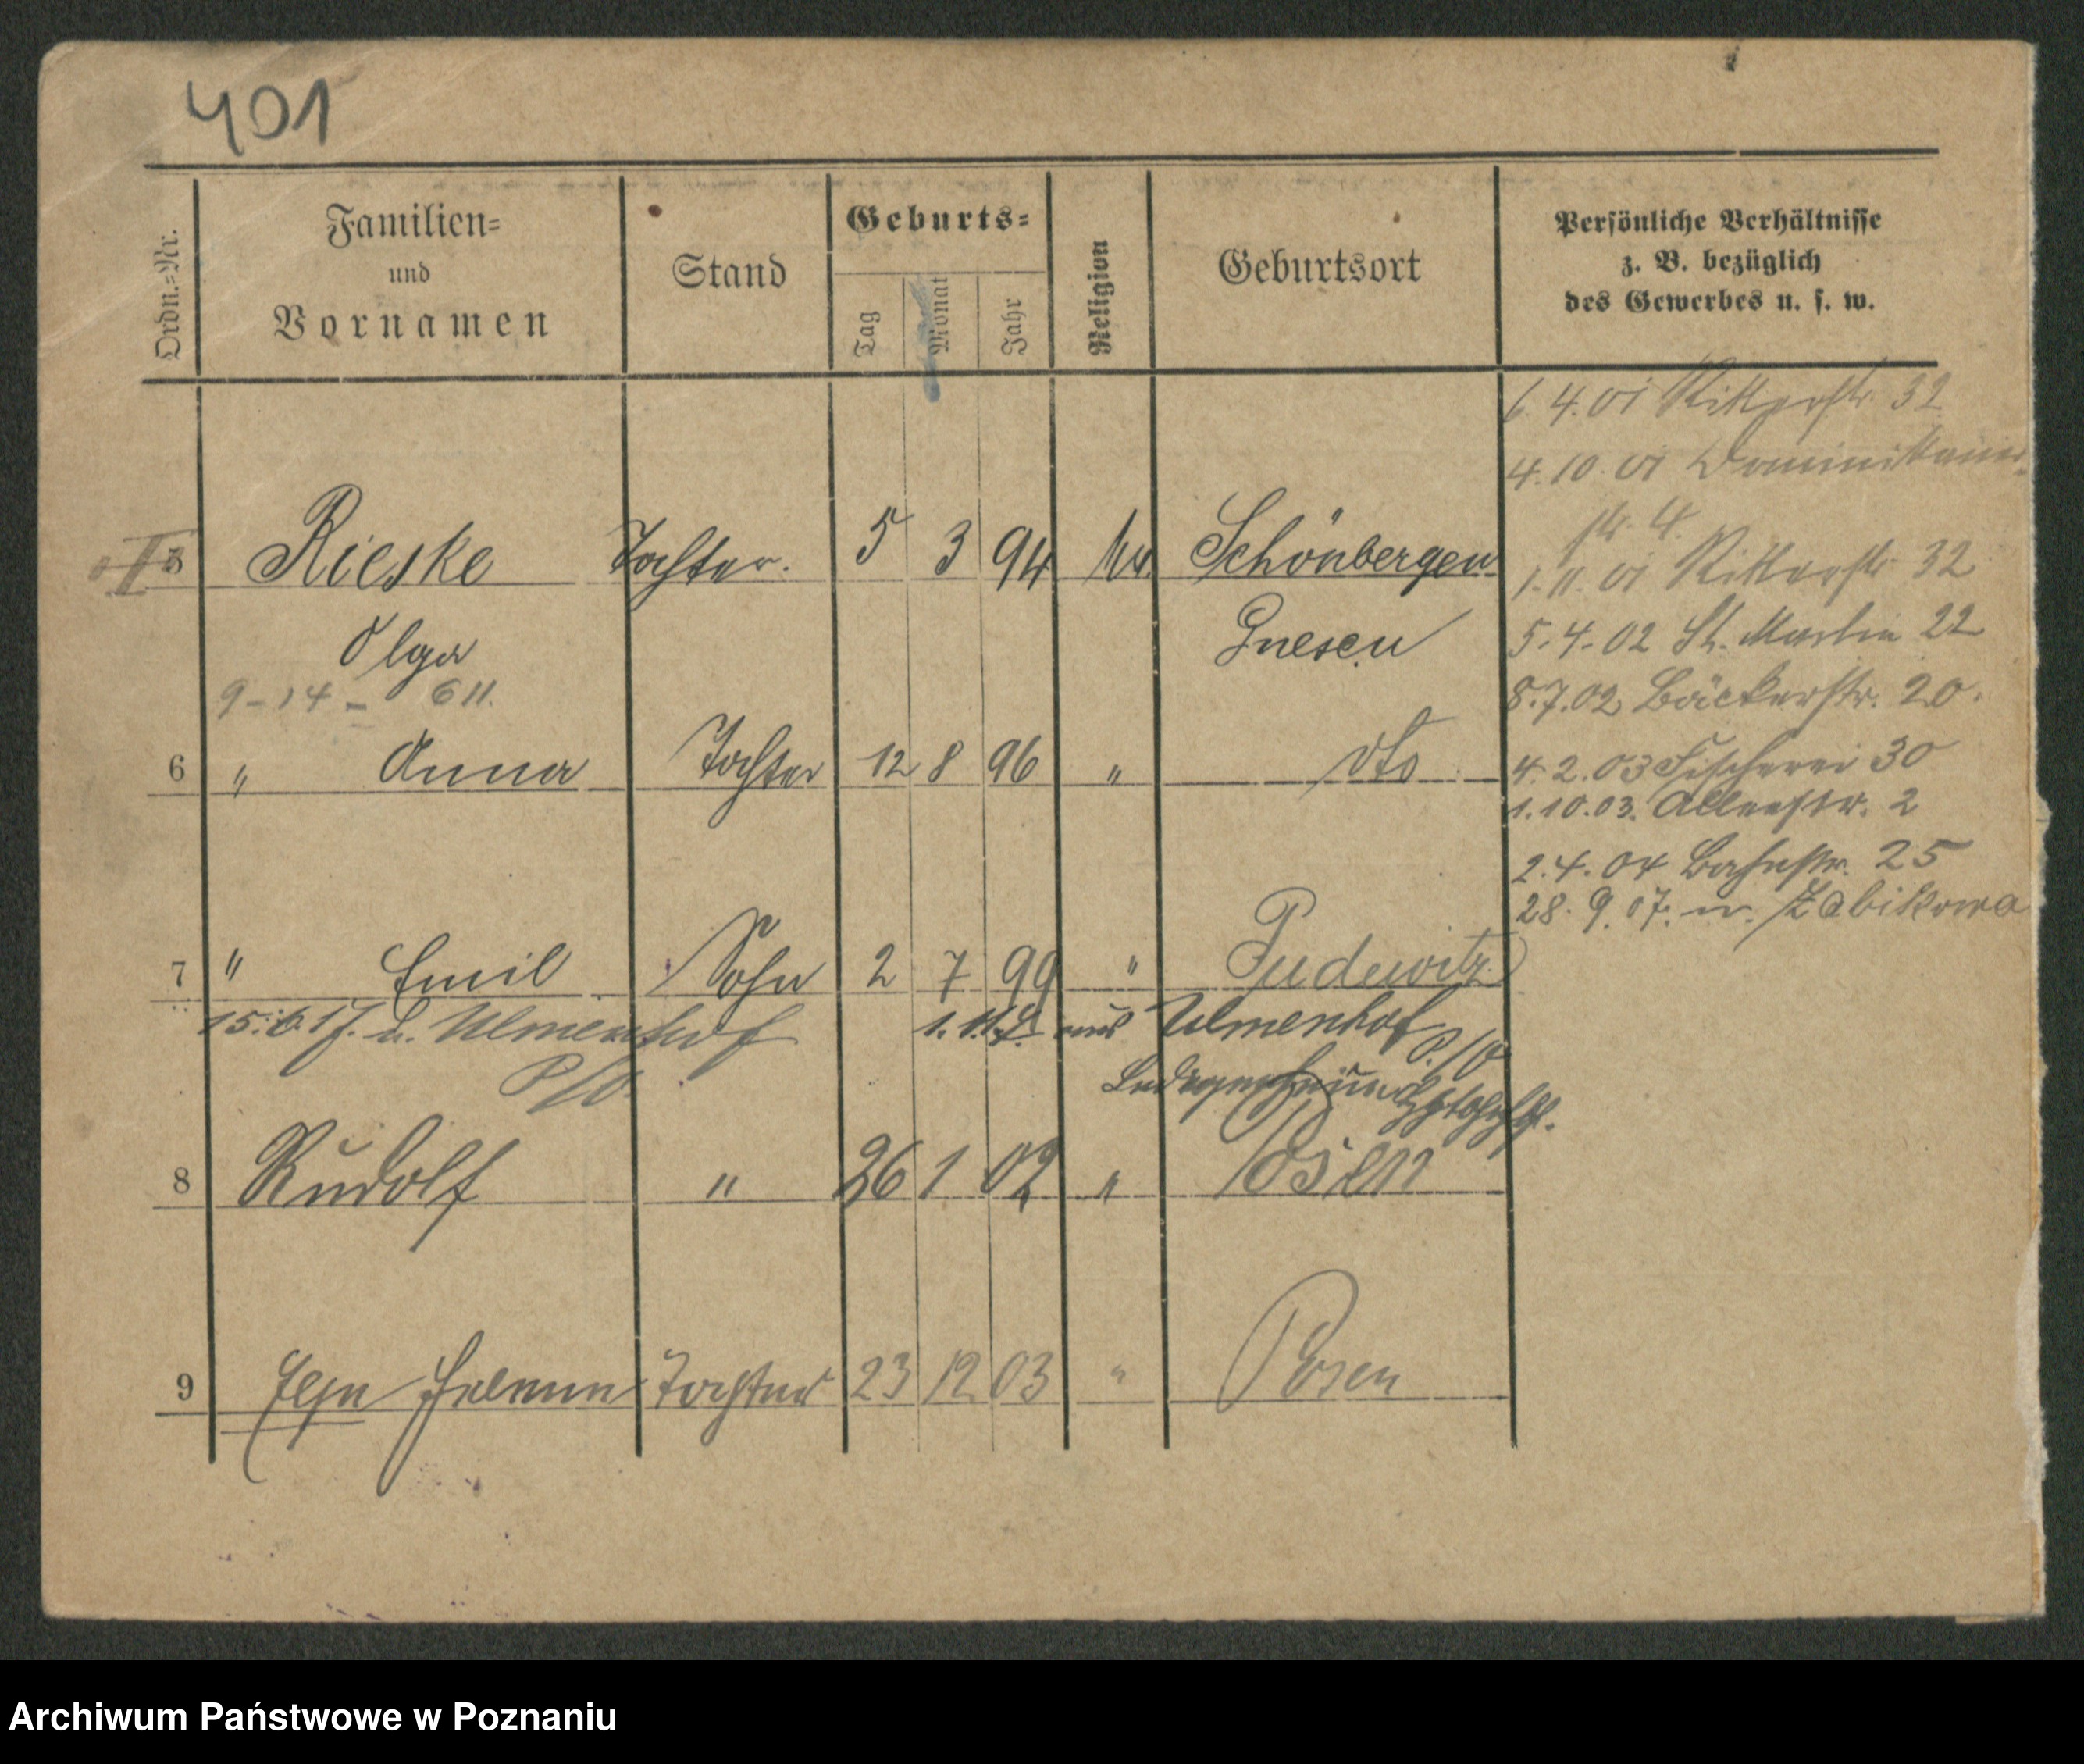 401
Ordn.=Nr.
Familien=
und
Vornamen
Stand
Geburts=
Tag
Monat
Jahr
Religion
Geburtsort
Persönliche Verhältnisse
z. B. bezüglich
des Gewerbes u. s. w.
6. 4. 01 Ritterstr. 32
4. 10. 01 Dominikaner-
str. 4.
5 Rieske Tochter. 5 3 94 Schönbergen
1. 11. 01 Ritterstr. 32
Olga Gnesen
5. 4. 02 St. Martin 22
9-14- 611.
8. 7. 02 Bäckerstr. 20.
6 " Anna Tochter 12 8 96 " dto
4. 2. 03 Fischerei 30
1. 10. 03. Alleestr. 2
2. 4. 04 Bahnstr. 25
28. 9. 07. n. Zabikowo
7 " Emil Sohn 2 7 99 " Pudewitz
15. 6. 17. n. Ulmenhof aus Ulmenhof P./O
P/O.
8 Rudolf " 26 1 02 " Posen
9 Helene Tochter 23 12 03 " Posen
Archiwum Państwowe w Poznaniu